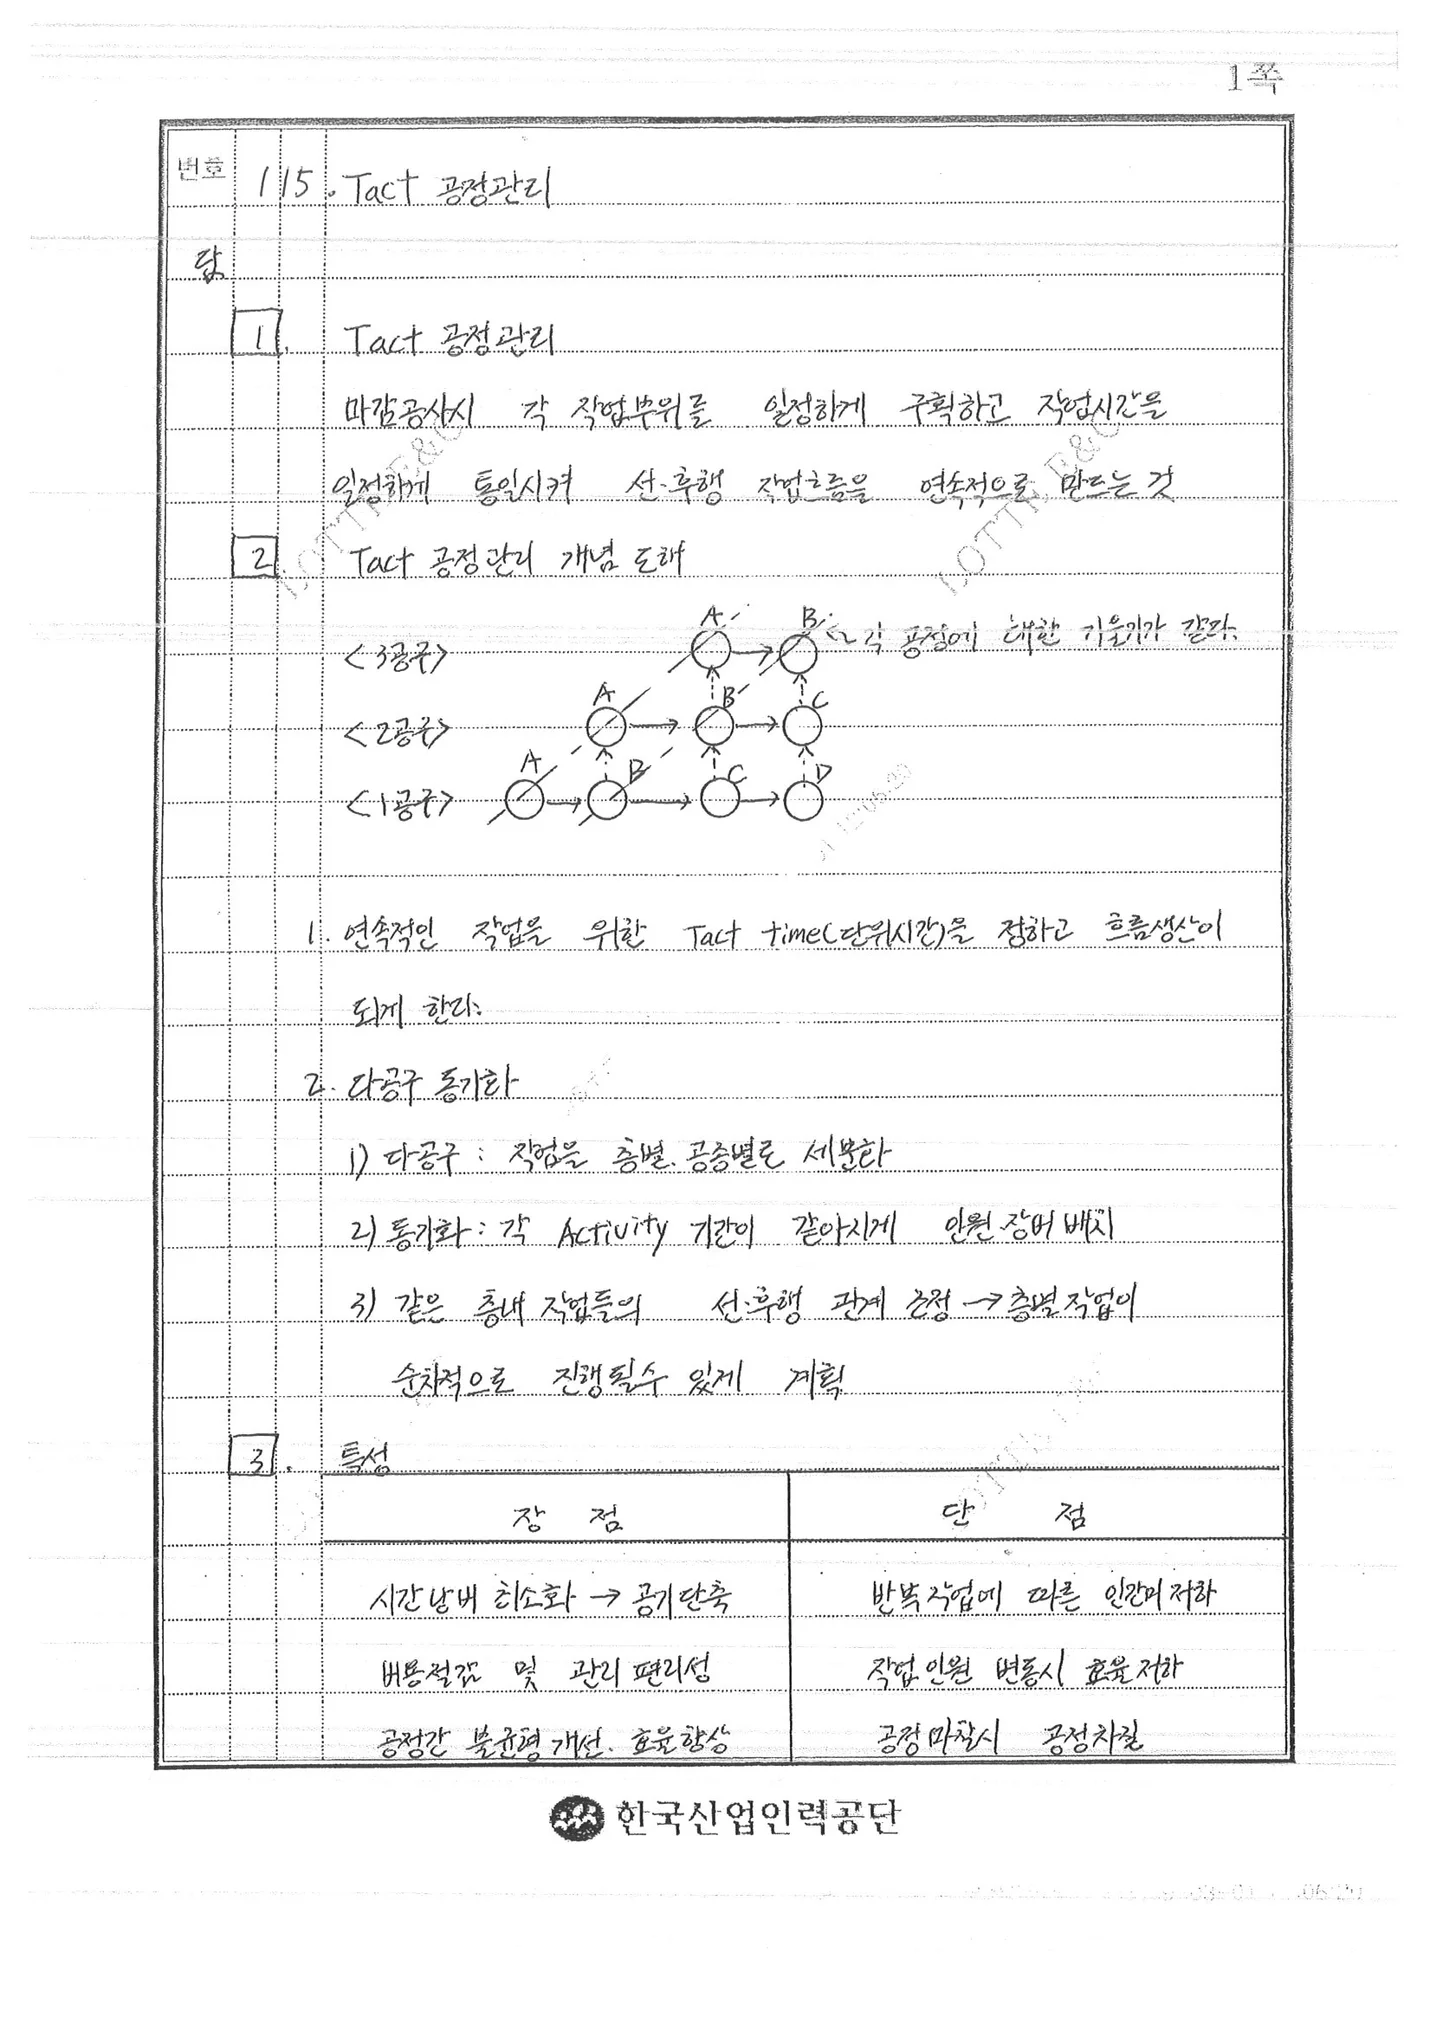 1쪽
번호 115. Tact 공정관리
답
1. Tact 공정관리
마감공사시 각 작업부위를 일정하게 구획하고 작업시간을
일정하게 통일시켜 선·후행 작업흐름을 연속적으로 만드는 것
2. Tact 공정관리 개념 도해
<3공구> A B 각 공정에 대한 기울기가 같다.
<2공구> A B C
<1공구> A B C D
1. 연속적인 작업을 위한 Tact time(단위시간)을 정하고 흐름생산이
되게 한다.
2. 다공구 동기화
1) 다공구 : 작업을 층별. 공종별로 세분화
2) 동기화 : 각 Activity 기간이 같아지게 인원·장비 배치
3) 같은 층내 작업들의 선·후행 관계 조정 → 층별작업이
순차적으로 진행될수 있게 계획
3. 특성
장 점 단 점
시간낭비 최소화 → 공기단축 반복작업에 따른 인간미 저하
비용절감 및 관리 편리성 작업인원 변동시 효율저하
공정간 불균형 개선. 효율향상 공정마찰시 공정차질
한국산업인력공단
LOTTE&C
LOTTE&C